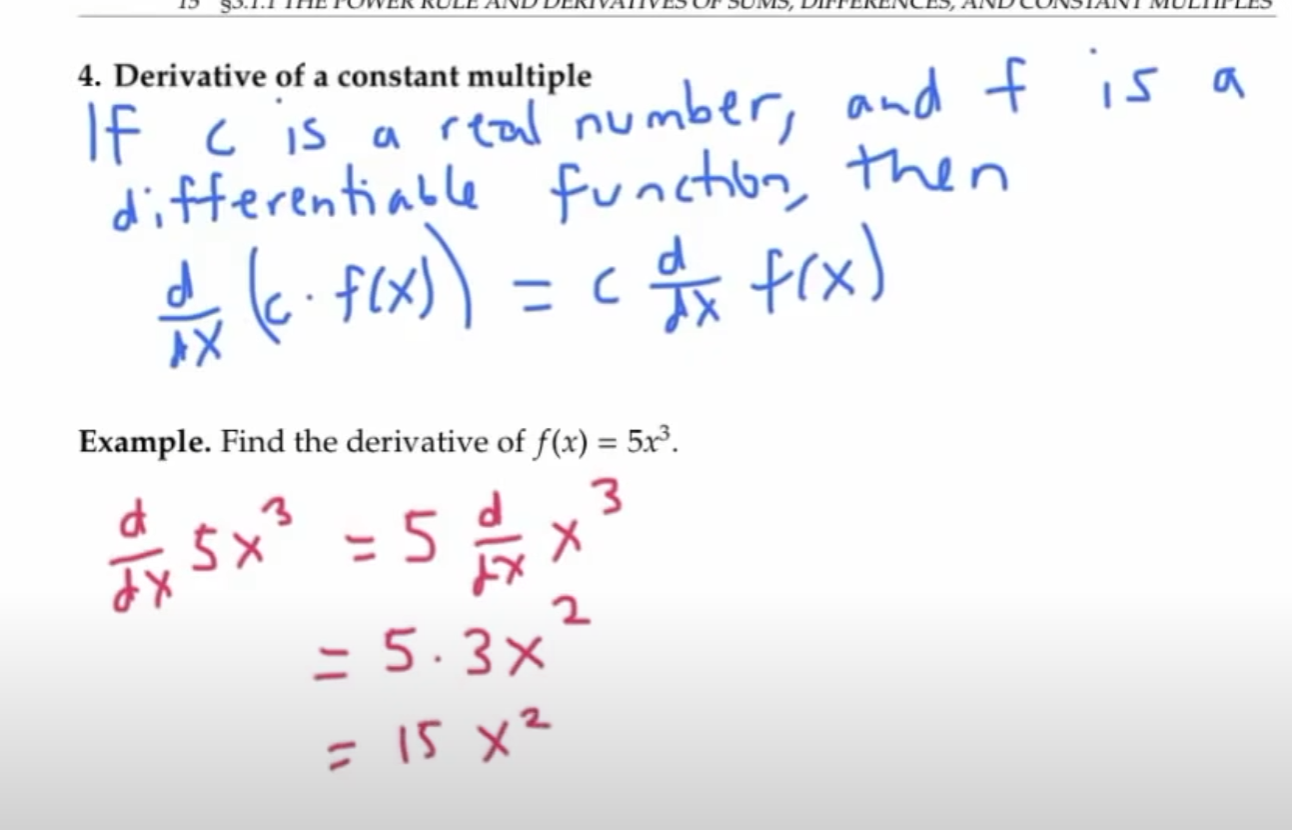 15 §3.1.1 THE POWER RULE AND DERIVATIVES OF SUMS, DIFFERENCES, AND CONSTANT MULTIPLES
4. Derivative of a constant multiple
If c is a real number, and f is a
differentiable function, then
d/dx (c · f(x)) = c d/dx f(x)
Example. Find the derivative of f(x) = 5x³.
d/dx 5x³ = 5 d/dx x³
= 5 · 3x²
= 15 x²